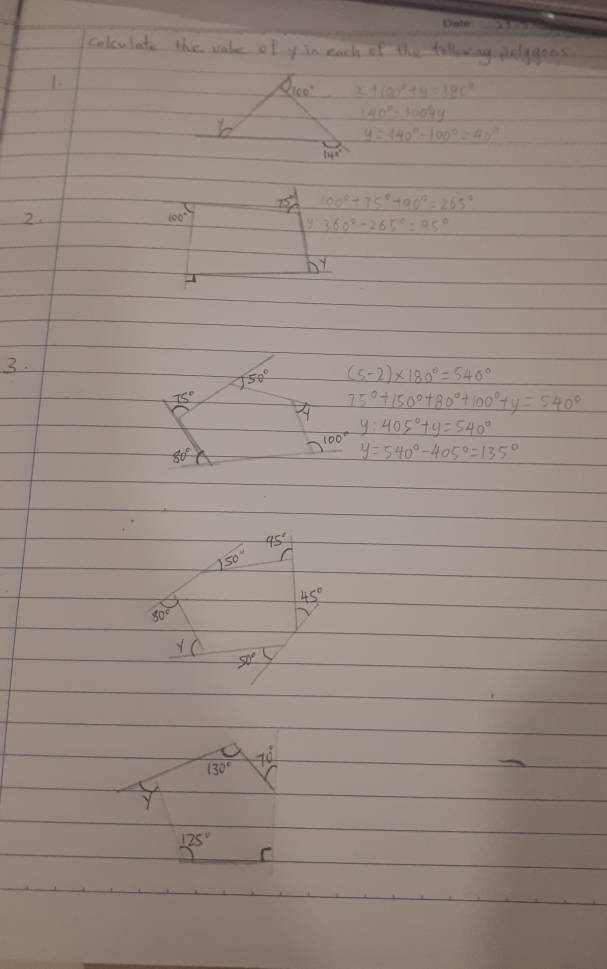 Date 
Calculate the value of y in each of the following polygons
1.
100°
y
140°
x+100°+y=180°
140°-100°y
y=140°-100°=40°
2.
100°
75°
Y
100°+75°+90°=265°
y:360°-265°=95°
3.
50°
75°
y
80°
100°
(5-2)×180°=540°
75°+150°+80°+100°+y=540°
y:405°+y=540°
y=540°-405°=135°
95°
50°
45°
80°
Y
50°
130°
70°
Y
125°